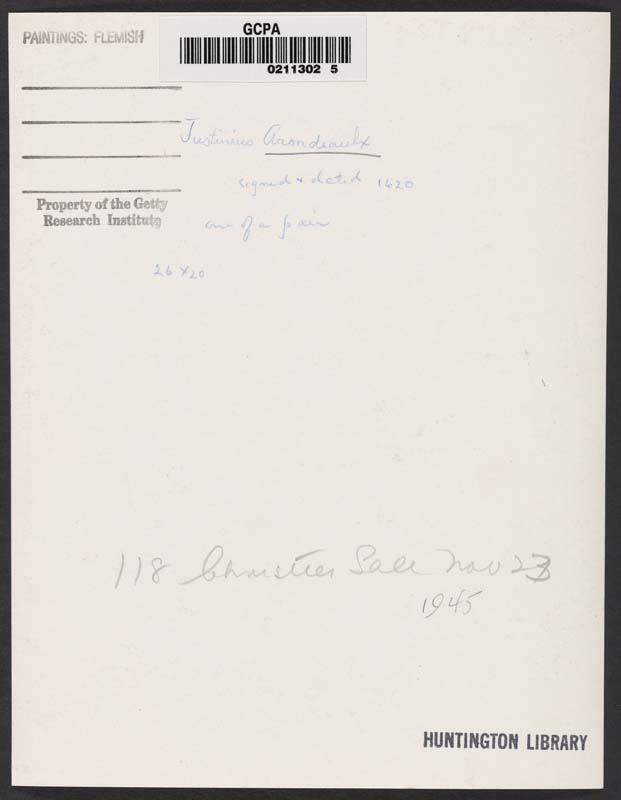 PAINTINGS: FLEMISH
GCPA
0211302 5
Justinius Arondeaulx
signed & dated 1620
Property of the Getty
Research Institute
one of a pair
26 x 20
118 Christies Sale Nov 23
1945
HUNTINGTON LIBRARY